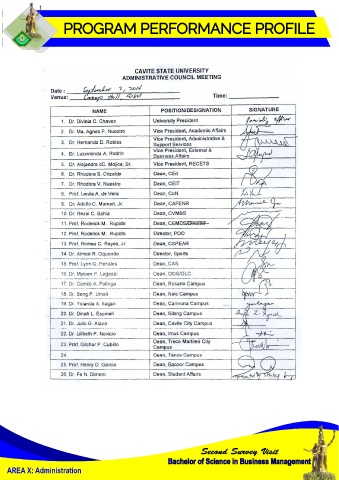 PROGRAM PERFORMANCE PROFILE
CAVITE STATE UNIVERSITY
ADMINISTRATIVE COUNCIL MEETING
Date : September 2,
Venue: Time:
NAME POSITION/DESIGNATION SIGNATURE
1. Dr. Divinia C. Chavez University President
2. Dr. Ma. Agnes P. Nuestro Vice President, Academic Affairs
3. Dr. Hernando D. Robles Vice President, Administrative & Support Services
4. Dr. Luzviminda A. Rodrin Vice President, External & Business Affairs
5. Dr. Alejandro C. Mojica, Sr. Vice President, RECETS
6. Dr. Rhodora S. Crizaldo Dean, CEd
7. Dr. Rhodora V. Nuestro Dean, CEIT
8. Prof. Lenila A. de Vera Dean, CoN
9. Dr. Adolfo C. Manuel, Jr. Dean, CAFENR
10. Dr. Rezin C. Bahia Dean, CVMBS
11. Prof. Roderick M. Rupido Dean, CEMDS
12. Prof. Roderick M. Rupido Director, PDO
13. Prof. Romeo C. Reyes, Jr. Dean, CSPEAR
14. Dr. Aimee R. Oquendo Director, Sports
15. Prof. Lynn G. Penales Dean, CAS
16. Dr. Myleen P. Legaspi Dean, GSOLC
17. Dr. Camilo A. Polinga Dean, Rosario Campus
18. Dr. Beng P. Umali Dean, Naic Campus
19. Dr. Yolanda A. Ilagan Dean, Carmona Campus
20. Dr. Dinah L. Espineli Dean, Silang Campus
21. Dr. Julio G. Alava Dean, Cavite City Campus
22. Dr. Lilibeth P. Novicio Dean, Imus Campus
23. Prof. Gilchor P. Cubillo Dean, Trece Martires City Campus
24. Dean, Tanza Campus
25. Prof. Henry O. Garcia Dean, Bacoor Campus
26. Dr. Fe N. Dimero Dean, Student Affairs
Second Survey Visit
Bachelor of Science in Business Management
AREA X: Administration